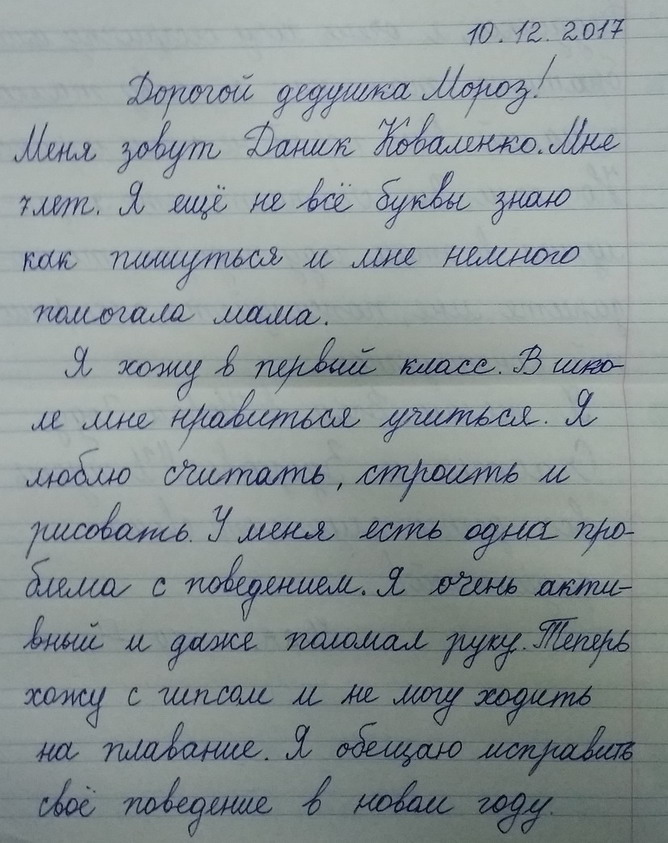 10.12.2017
Дорогой дедушка Мороз!
Меня зовут Даник Коваленко. Мне
7 лет. Я ещё не всё буквы знаю
как пишуться и мне немного
помогала мама.
Я хожу в первый класс. В шко-
ле мне нравиться учиться. Я
люблю считать, строить и
рисовать. У меня есть одна про-
блема с поведением. Я очень акти-
вный и даже поломал руку. Теперь
хожу с гипсом и не могу ходить
на плавание. Я обещаю исправить
своё поведение в новом году.